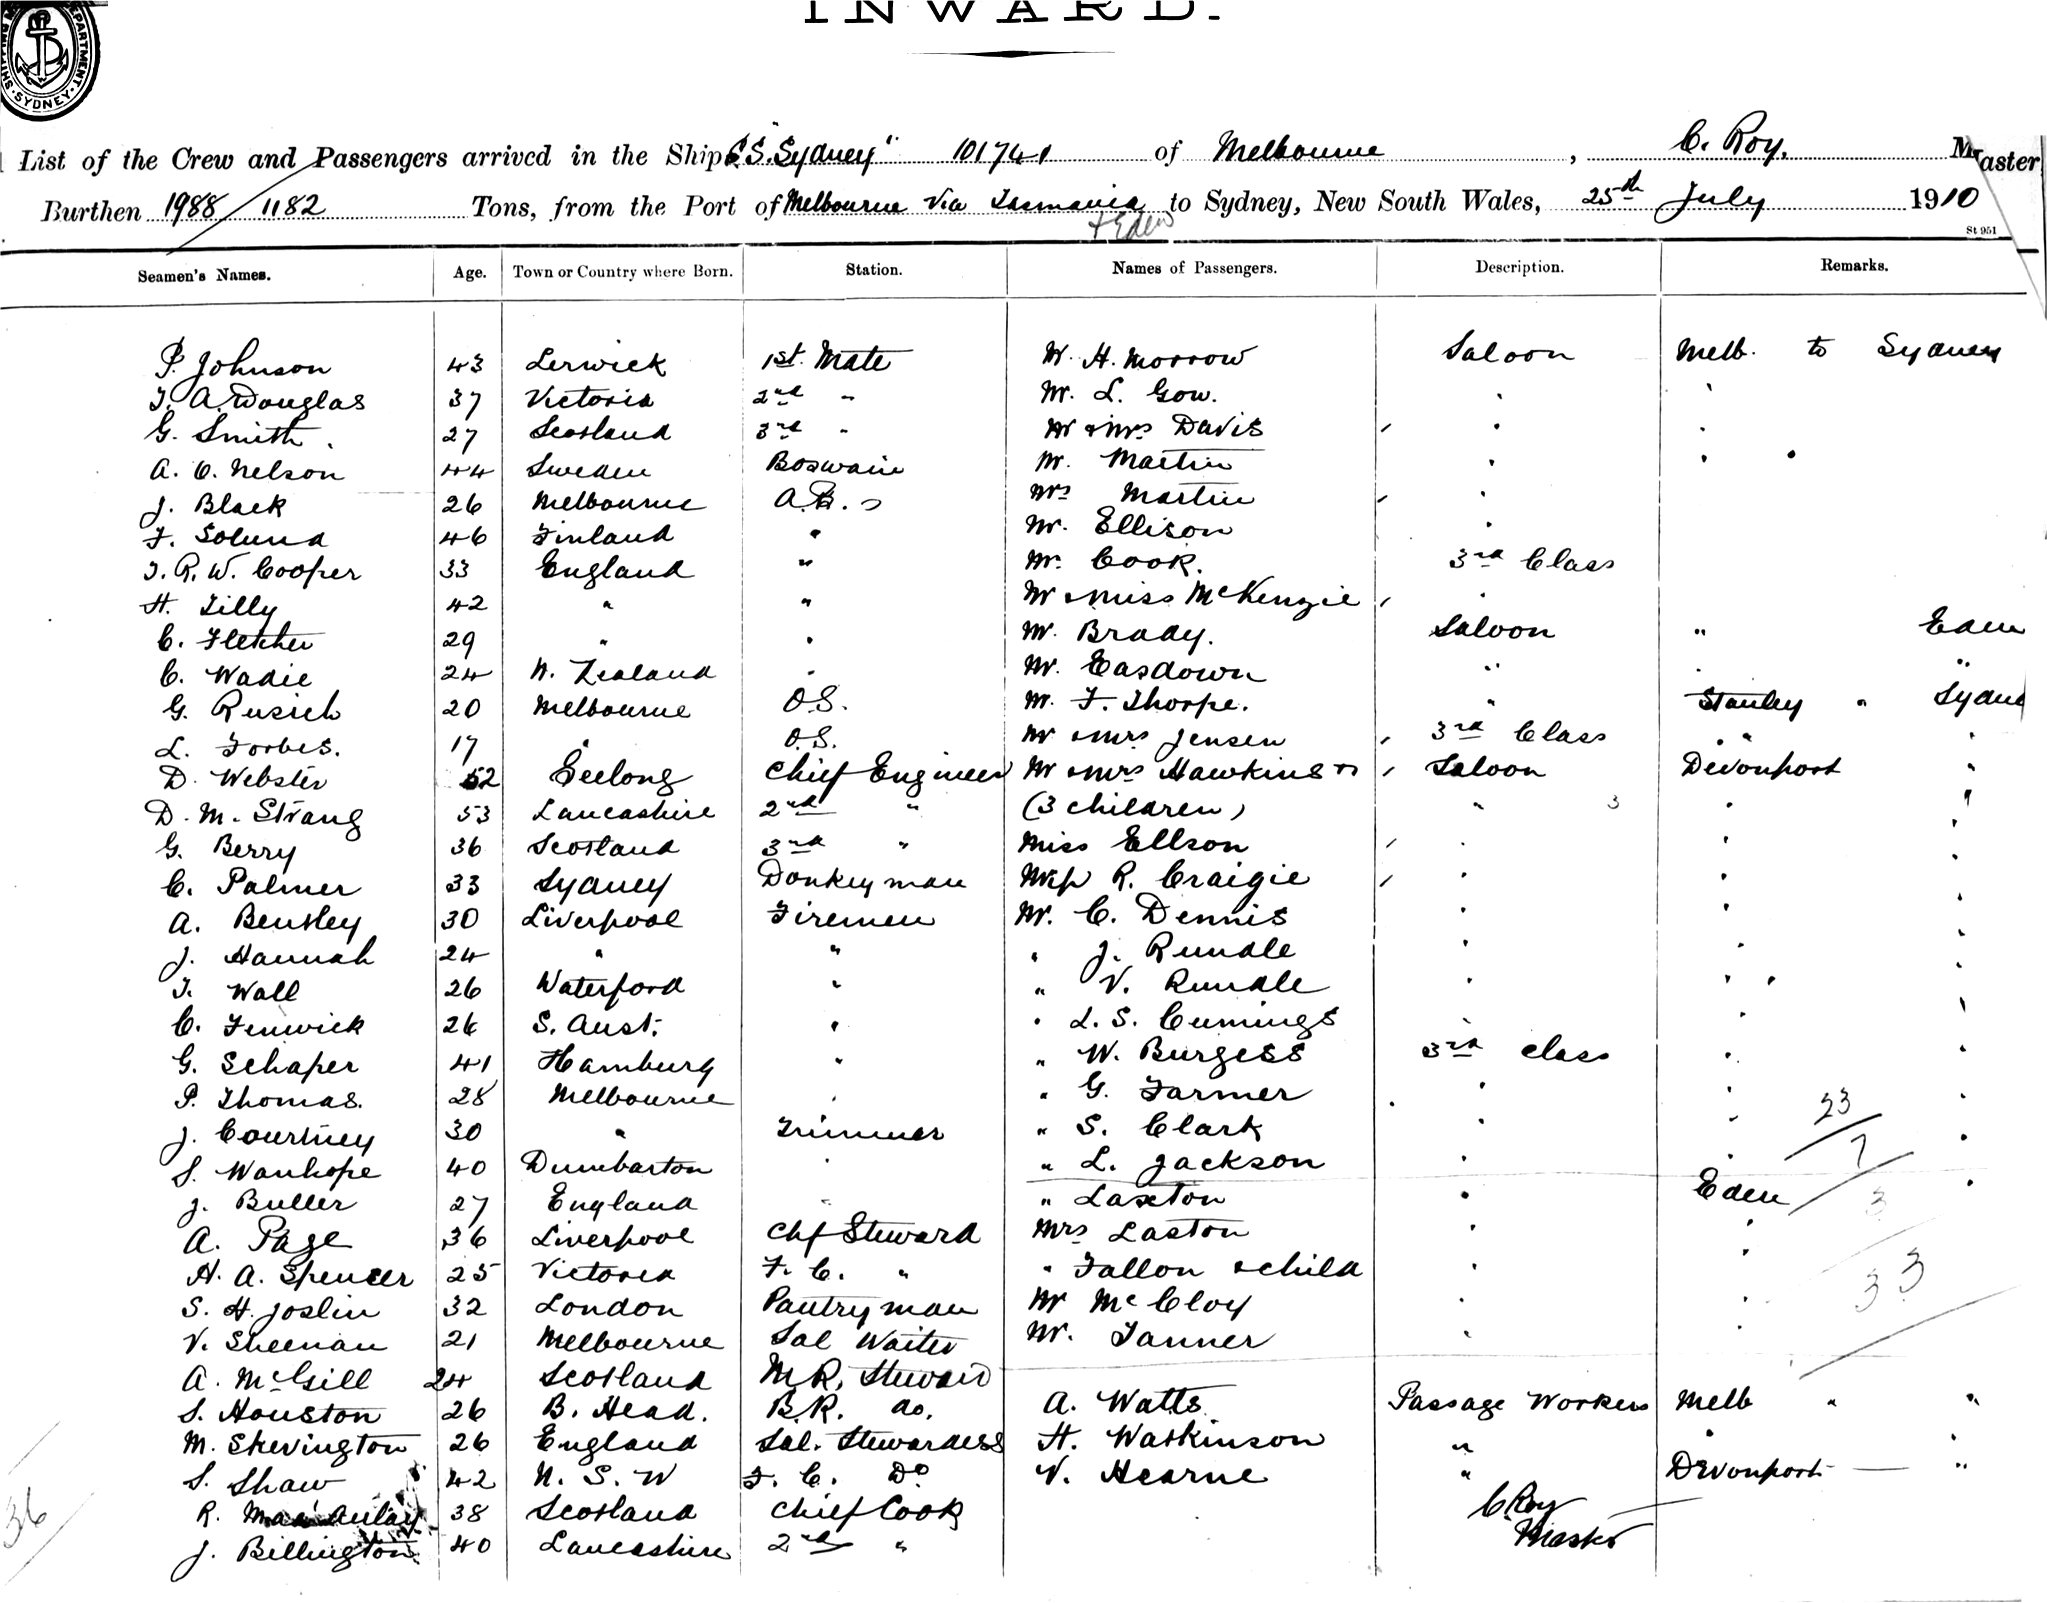 INWARD.
SHIPPING M DEPARTMENT. SYDNEY
List of the Crew and Passengers arrived in the Ship S.S. "Sydney" 101741 of Melbourne, C. Roy. Master
Burthen 1988/1182 Tons, from the Port of Melbourne Via Tasmania to Sydney, New South Wales, 25th July 1910
+ Eden
St 951
Seamen's Names. Age. Town or Country where Born. Station. Names of Passengers. Description. Remarks.
P. Johnson 43 Lerwick 1st Mate Mr H. Morrow Saloon Melb. to Sydney
T. A. Douglas 37 Victoria 2nd " Mr. L. Gow. " "
G. Smith. 27 Scotland 3rd " Mr & Mrs Davis " "
A. C. Nelson 44 Sweden Boswain Mr. Martin " " "
J. Black 26 Melbourne A.B.s Mrs Martin "
F. Solund 46 Finland " Mr. Ellison "
T. R. W. Cooper 33 England " Mr. Cook. 3rd Class
H. Tilly 42 " " Mr & Miss McKenzie "
C. Fletcher 29 " " Mr. Brady. Saloon " Eden
C. Wadie 24 N. Zealand " Mr. Easdown " " "
G. Rusich 20 Melbourne O.S. Mr. F. Thorpe. " Stanley " Sydne
L. Forbes. 17 " O.S. Mr & Mrs Jensen 3rd Class " "
D. Webster 52 Geelong Chief Engineer Mr & Mrs Hawkins & Saloon Devonport "
D. M. Strang 53 Lancashire 2nd " (3 children) " 3 " "
G. Berry 36 Scotland 3rd " Miss Ellson " " "
C. Palmer 33 Sydney Donkeyman R. Craigie " " "
A. Bensley 30 Liverpool Firemen Mr. C. Dennis " " "
J. Hannah 24 " " " J. Rundle " " "
T. Wall 26 Waterford " " V. Rundle " " "
C. Fenwick 26 S. Aust. " " L. S. Cumings " " "
G. Schaper 41 Hamburg " " W. Burgess 3rd Class " "
P. Thomas. 28 Melbourne " " G. Farmer " " 23 "
J. Courtney 30 " Trimmer " S. Clark " " 7 "
S. Wanhope 40 Dumbarton " " L. Jackson " " "
J. Buller 27 England " " Laxton " Eden 3 "
A. Page 36 Liverpool Chf Steward Mrs Laxton " "
H. A. Spencer 25 Victoria F. C. " " Fallon & child " " 33
S. H. Joslin 32 London Pantryman Mr McCloy " "
V. Sheenan 21 Melbourne Sal Waiter Mr. Tanner " "
A. McGill 24 Scotland M.R. Steward
S. Houston 26 B. Head. B.R. do. A. Watts Passage Workers Melb " "
M. Skevington 26 England Sal. Stewardess H. Watkinson " " "
S. Shaw 42 N. S. W F. C. Do V. Hearne " Devonport — "
R. MacAulay 38 Scotland Chief Cook C. Roy
J. Billington 40 Lancashire 2nd " Master
36